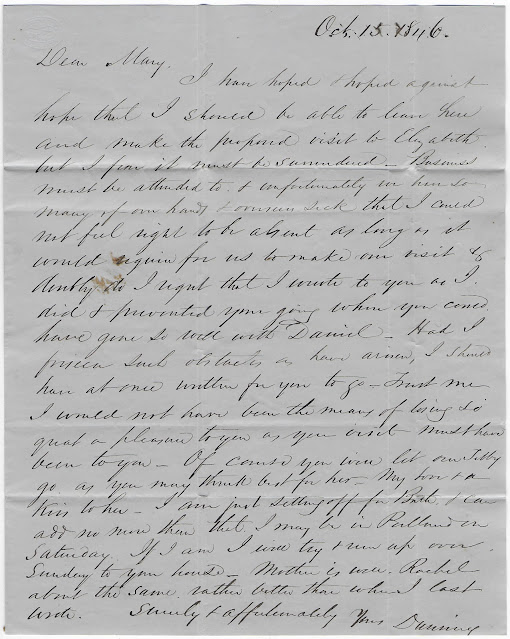 Oct. 15. 1846.
Dear Mary.
I have hoped & hoped against
hope that I should be able to leave here
and make the proposed visit to Elizabeth
but I fear it must be surrendered – Business
must be attended to. & unfortunately we have so
many of our hands & overseers sick that I could
not feel right to be absent as long as it
would require for us to make our visit &
do I regret that I wrote to you as I
did & prevented your going when you could
have gone so well with Daniel – Had I
foreseen such obstacles as have arisen, I should
have at once written for you to go – Trust me
I would not have been the means of losing so
great a pleasure to you as your visit must have
been to you – Of course you will let our
go as you may think best for her – My love & a
kiss to her – I am just setting off for Bath, & can
add no more than that I may be in Portland on
Saturday. If I am I will try & run up over
Sunday to your house – Mother is well. Rachel
about the same, rather better than when I last
wrote. Sincerely & affectionately Yrs